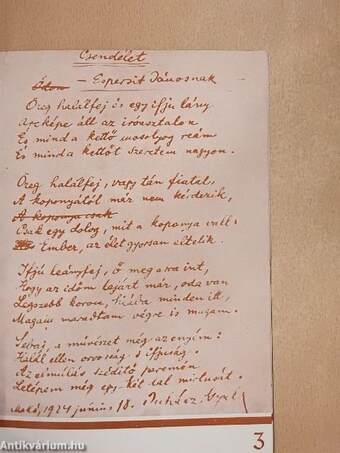 Csendélet
Ódon – Espersit Jánosnak
Öreg halálfej és egy ifju lány
Arcképe áll az iróasztalon
És mind a kettő mosolyog reám
És mind a kettőt szeretem nagyon.
Öreg halálfej, vagy tán fiatal,
A koponyától már nem kérdezik,
A koponya csak
Csak egy dolog, mit a koponya vall:
Ember, az élet gyorsan eltelik.
Ifju leányfej, ő meg arra int,
Hogy az időm lejárt már, oda van
Legszebb korom, hiába minden itt,
Magam maradtam végre is magam.
Sebaj, a művészet még az enyém:
Halál ellen orvosság s ifjuság.
Az elmulás szédítő peremén
Letépem még egy-két
Makó, 1924 junius 18. Juhász Gyula
3
Antikvárium.hu